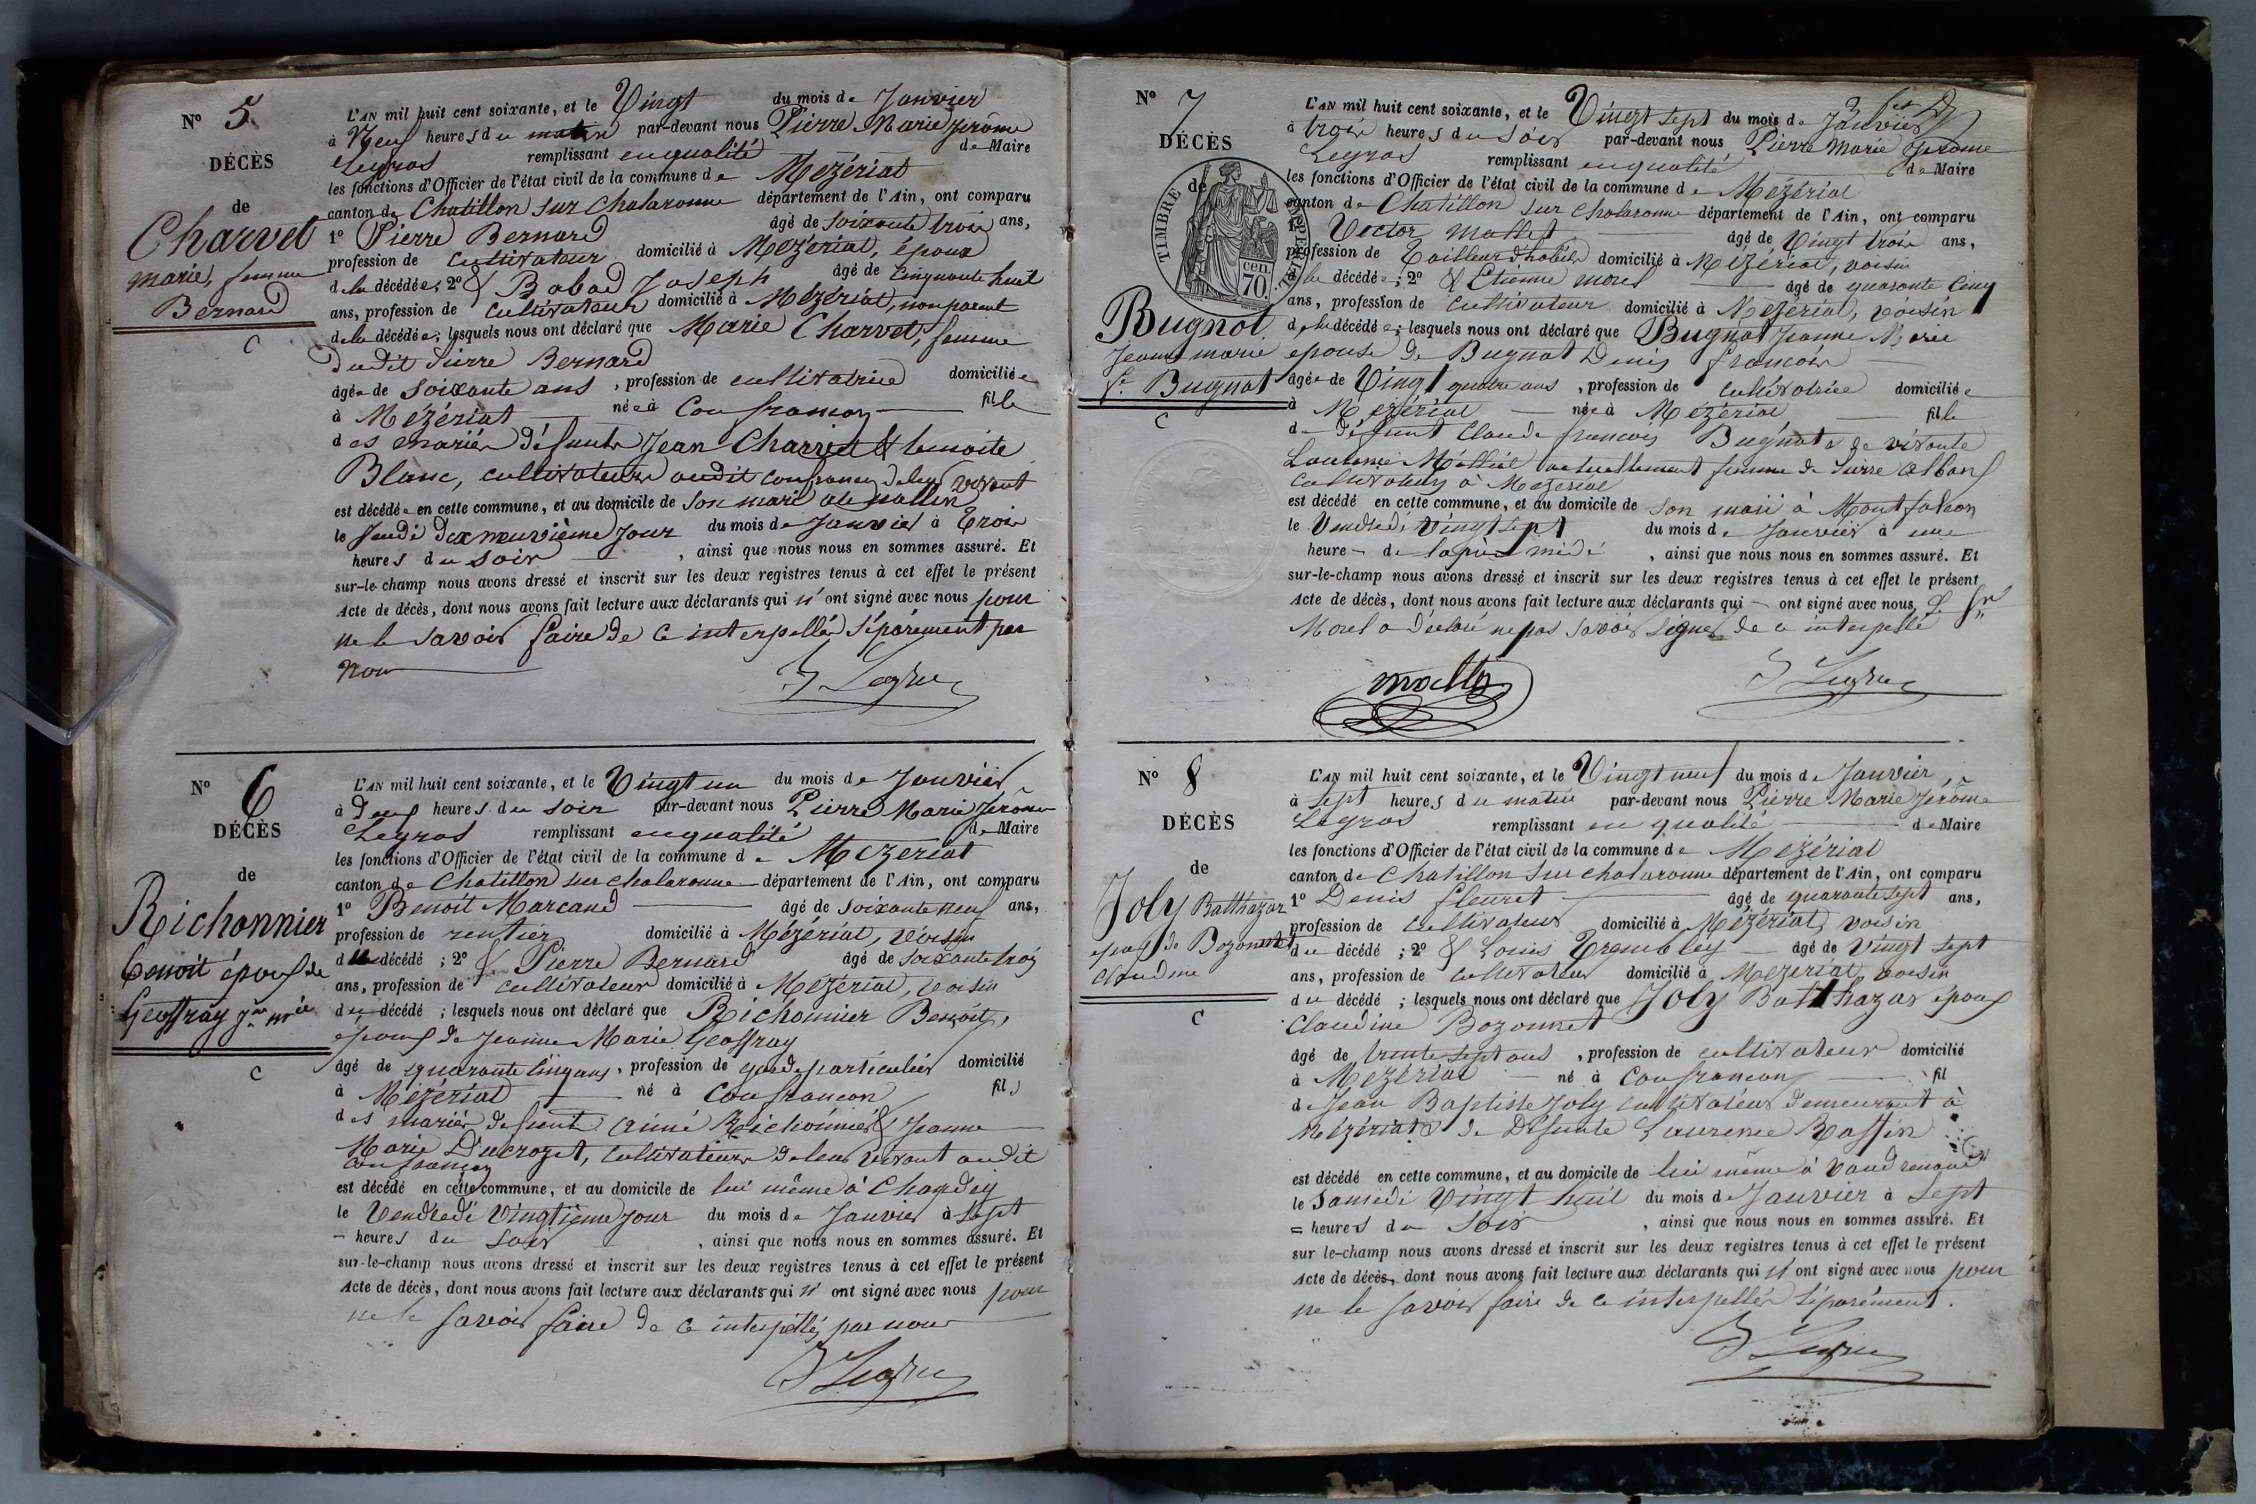 Nº 5
DÉCÈS
de
Charvet
marie, femme
Bernard
C
L'AN mil huit cent soixante, et le Vingt du mois de Janvier
à Neuf heures du matin par-devant nous Pierre Marie Jerôme
Legros remplissant en qualité de Maire
les fonctions d'Officier de l'état civil de la commune de Mézériat
canton de Chatillon sur Chalaronne département de l'Ain, ont comparu
1º Pierre Bernard âgé de soixante trois ans,
profession de cultivateur domicilié à Mézériat, époux
de la décédée; 2º & Babad Joseph âgé de Cinquante huit
ans, profession de cultivateur domicilié à Mézériat, non parent
de la décédée; lesquels nous ont déclaré que Marie Charvet, femme
dudit Pierre Bernard
âgée de soixante ans, profession de cultivatrice domiciliée
à Mézériat née à Confrançon fille
des mariés défunts Jean Charvet & benoite
Blanc, cultivateurs audit Confrançon de leur vivant
est décédée en cette commune, et au domicile de son mari
le Jeudi dix neuvième jour du mois de Janvier à Trois
heures du soir, ainsi que nous nous en sommes assuré. Et
sur-le-champ nous avons dressé et inscrit sur les deux registres tenus à cet effet le présent
Acte de décès, dont nous avons fait lecture aux déclarants qui n'ont signé avec nous pour
ne le savoir faire de ce interpellés séparement par
nous
J Legros
Nº 6
DÉCÈS
de
Richonnier
benoit époux de
Geoffray jne mie
C
L'AN mil huit cent soixante, et le Vingt un du mois de Janvier
à deux heures du soir par-devant nous Pierre Marie Jerôme
Legros remplissant en qualité de Maire
les fonctions d'Officier de l'état civil de la commune de Mézériat
canton de Chatillon sur chalaronne département de l'Ain, ont comparu
1º Benoit Marcand âgé de soixante neuf ans,
profession de rentier domicilié à Mézériat, voisin
du décédé; 2º & Pierre Bernard âgé de soixante trois
ans, profession de cultivateur domicilié à Mézériat, voisin
du décédé; lesquels nous ont déclaré que Richonnier Benoit,
époux de Jeanne Marie Geoffray
âgé de quarante cinq ans, profession de garde particulier domicilié
à Mézériat né à Confrançon fils
des mariés defunt Aimé Richonnier & Jeanne
Marie Ducrozet, cultivateurs de leur vivant audit
Confrançon
est décédé en cette commune, et au domicile de lui même à Chandey
le Vendredi Vingtième jour du mois de Janvier à sept
heures du soir, ainsi que nous nous en sommes assuré. Et
sur-le-champ nous avons dressé et inscrit sur les deux registres tenus à cet effet le présent
Acte de décès, dont nous avons fait lecture aux déclarants qui n'ont signé avec nous pour
ne le savoir faire de ce interpellés par nous
J Legros
Nº 7
DÉCÈS
de
TIMBRE IMPERIAL
70 cen.
Bugnot
Jeanne marie
fe Bugnot
C
L'AN mil huit cent soixante, et le Vingt sept du mois de Janvier
à trois heures du soir par-devant nous Pierre Marie Jerôme
Legros remplissant en qualité de Maire
les fonctions d'Officier de l'état civil de la commune de Mézériat
canton de Chatillon sur chalaronne département de l'Ain, ont comparu
1º Vector Mallet âgé de Vingt trois ans,
profession de Tailleur d'habits domicilié à Mézériat, voisin
de la décédée; 2º & Etienne morel âgé de quarante cinq
ans, profession de cultivateur domicilié à Mézériat, voisin
de la décédée; lesquels nous ont déclaré que Bugnot Jeanne Marie
epouse de Bugnot Denis françois
âgée de Vingt quatre ans, profession de cultivatrice domiciliée
à Mézériat née à Mézériat fille
de défunt Claude françois Bugnot & de vivante
actuellement femme de Pierre Alban
cultivateurs à Mézériat
est décédé en cette commune, et au domicile de son mari à Montfalcon
le Vendredi vingt sept du mois de Janvier à une
heure de l'après midi, ainsi que nous nous en sommes assuré. Et
sur-le-champ nous avons dressé et inscrit sur les deux registres tenus à cet effet le présent
Acte de décès, dont nous avons fait lecture aux déclarants qui ont signé avec nous Le Sr
Morel a déclaré ne pas savoir signer de ce interpellé
mallet
J Legros
Nº 8
DÉCÈS
de
Joly Balthazar
époux de Bozonnet
Claudine
C
L'AN mil huit cent soixante, et le Vingt neuf du mois de Janvier
à sept heures du matin par-devant nous Pierre Marie Jerôme
Legros remplissant en qualité de Maire
les fonctions d'Officier de l'état civil de la commune de Mézériat
canton de Chatillon sur chalaronne département de l'Ain, ont comparu
1º Denis fleuret âgé de quarante sept ans,
profession de cultivateur domicilié à Mézériat, voisin
du décédé; 2º & Louis Trembley âgé de vingt sept
ans, profession de cultivateur domicilié à Mézériat, voisin
du décédé; lesquels nous ont déclaré que Joly Balthazar époux
Claudine Bozonnet
âgé de trente sept ans, profession de cultivateur domicilié
à Mézériat né à Confrançon fil
de Jean Baptiste Joly cultivateur demeurant à
Mézériat & de Défunte Laurence Raffin
est décédé en cette commune, et au domicile de lui même à
le Samedi vingt huit du mois de Janvier à sept
heures du soir, ainsi que nous nous en sommes assuré. Et
sur le-champ nous avons dressé et inscrit sur les deux registres tenus à cet effet le présent
Acte de décès, dont nous avons fait lecture aux déclarants qui n'ont signé avec nous pour
ne le savoir faire de ce interpellés séparément.
J Legros